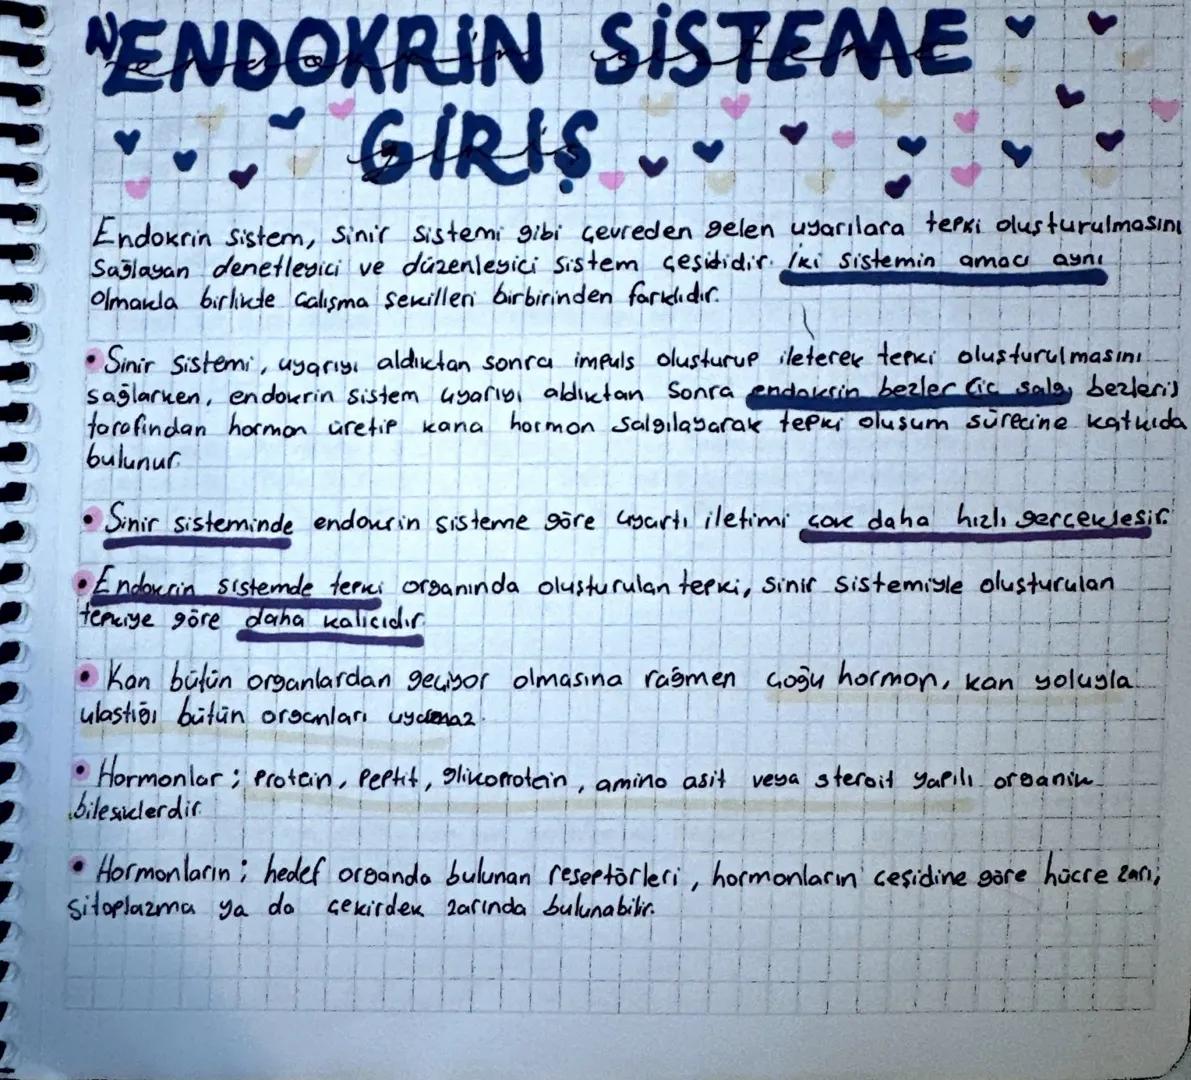 ENDOKRİN SİSTEME
GİRİŞ
Endokrin sistem, sinir sistemi gibi çevreden gelen uyarılara tepki oluşturulmasını
Sağlayan denetleyici ve düzenleyici sistem çeşididir. İki sistemin amacı aynı
olmakla birlikte çalışma şekilleri birbirinden farklıdır.
• Sinir sistemi, uyarıyı aldıktan sonra impuls oluşturup ileterek tepki oluşturulmasını
sağlarken, endokrin sistem uyarıyı aldıktan Sonra endokrin bezler (iç salgı bezleri)
tarafından hormon üretip kana hormon salgılayarak tepki oluşum sürecine katkıda
bulunur.
• Sinir sisteminde endokrin sisteme göre uyartı iletimi çok daha hızlı gerçekleşir.
• Endokrin sistemde tepki organında oluşturulan tepki, sinir sistemiyle oluşturulan
tepkiye göre daha kalıcıdır.
• Kan bütün organlardan geçiyor olmasına rağmen çoğu hormon, kan yoluyla
ulaştığı bütün organları uyarmaz.
• Hormonlar; protein, peptit, glikoprotein, amino asit veya steroit yapılı organik
bileşiklerdir.
• Hormonların; hedef organda bulunan reseptörleri, hormonların çeşidine göre hücre zarı,
sitoplazma ya da çekirdek zarında bulunabilir.